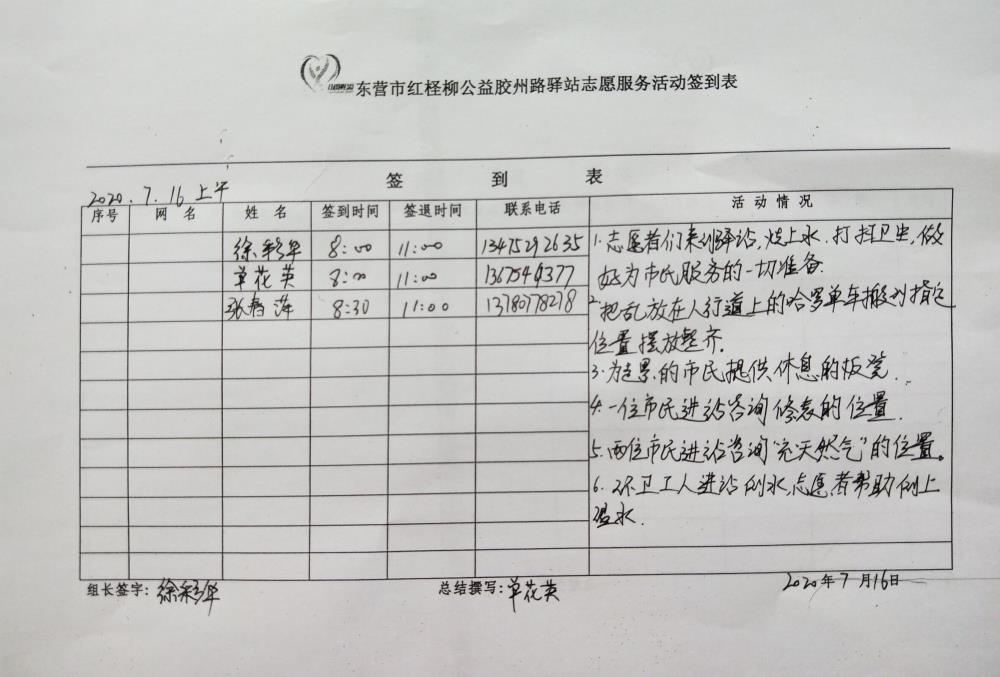 东营市红柽柳公益胶州路驿站志愿服务活动签到表
签 到 表
2020.7.16上午
序号 网 名 姓 名 签到时间 签退时间 联系电话 活 动 情 况
徐彩华 8:00 11:00 13475292635
单花英 8:00 11:00 1367544377
张春萍 8:30 11:00 13780778278
1.志愿者们来到驿站,烧上水.打扫卫生,做
好为市民服务的一切准备.
2.把乱放在人行道上的哈罗单车搬到指定
位置摆放整齐.
3.为走累的市民提供休息的板凳.
4.一位市民进站咨询修表的位置.
5.两位市民进站咨询“充天然气”的位置。
6.环卫工人进站倒水,志愿者帮助倒上
温水.
组长签字:徐彩华 总结撰写:单花英 2020年7月16日